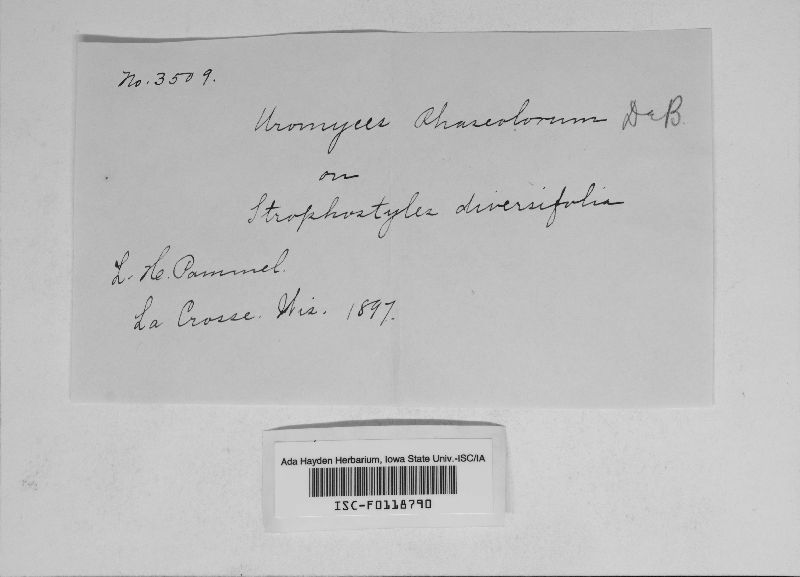 No. 3509.
Uromyces Phaseolorum De B.
on
Strophostyles diversifolia
L. H. Pammel.
La Crosse. Wis. 1897.
Ada Hayden Herbarium, Iowa State Univ.-ISC/IA
ISC-F0118790